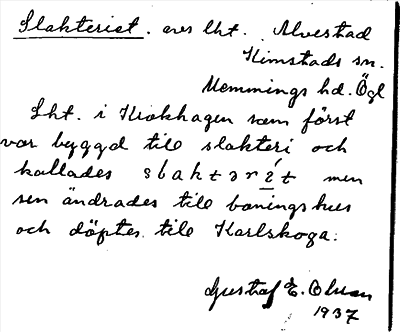 Slakteriet. avs lht. Alvestad
Kimstads sn.
Memmings hd. Ögl
Lht. i Krokhagen som först
var byggd till slakteri och
kallades slaktərít men
sen ändrades till boningshus
och döptes till Karlskoga.
Gustaf E. Olson
1937